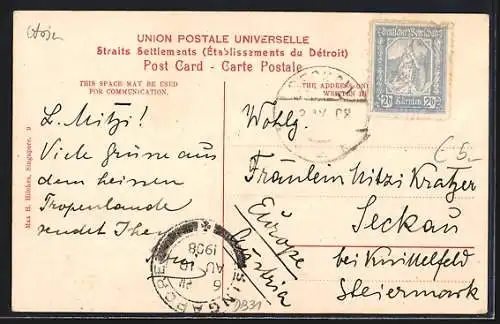 UNION POSTALE UNIVERSELLE
Straits Settlements (Établissements du Détroit)
Post Card - Carte Postale
THIS SPACE MAY BE USED
FOR COMMUNICATION.
THE ADDRESS ON
WRITTEN
Max H. Hilckes, Singapore. 9
Deutscher Schulverein
20 Kärnten 20
L. Mitzi!
Viele Grüsse aus
dem heissen
Tropenlande
sendet Ihnen
SINGAPORE
6
AU 10
1908
Wohlg.
Fräulein Mitzi Kratzer
Seckau
bei Knittelfeld
Steiermark
Europe
Austria
€ 5-